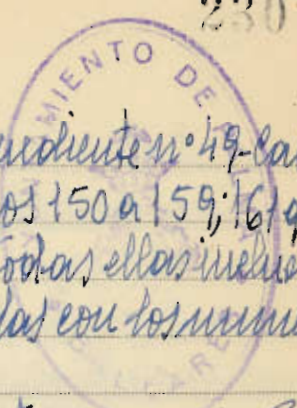 230
MIENTO DE
endiente nº 49-Ca
os 150 a 159; 161 a
Todas ellas inclui
das con los nume